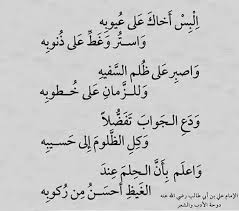 اِلبِسْ أخاكَ عَلى عُيوبِه
وَاستُر وَغَطِّ عَلى ذُنوبِه
وَاصبِر عَلى ظُلمِ السَفيهِ
وَلِلزَمانِ عَلى خُطوبِه
وَدَعِ الجَوابَ تَفَضُّلاً
وَكِلِ الظَلومَ إلى حَسيبِه
وَاعلَم بِأَنَّ الحِلمَ عِندَ
الغَيظِ أحسَنُ مِن رُكوبِه
الإمام علي بن أبي طالب رضي الله عنه
دوحة الأدب والشعر